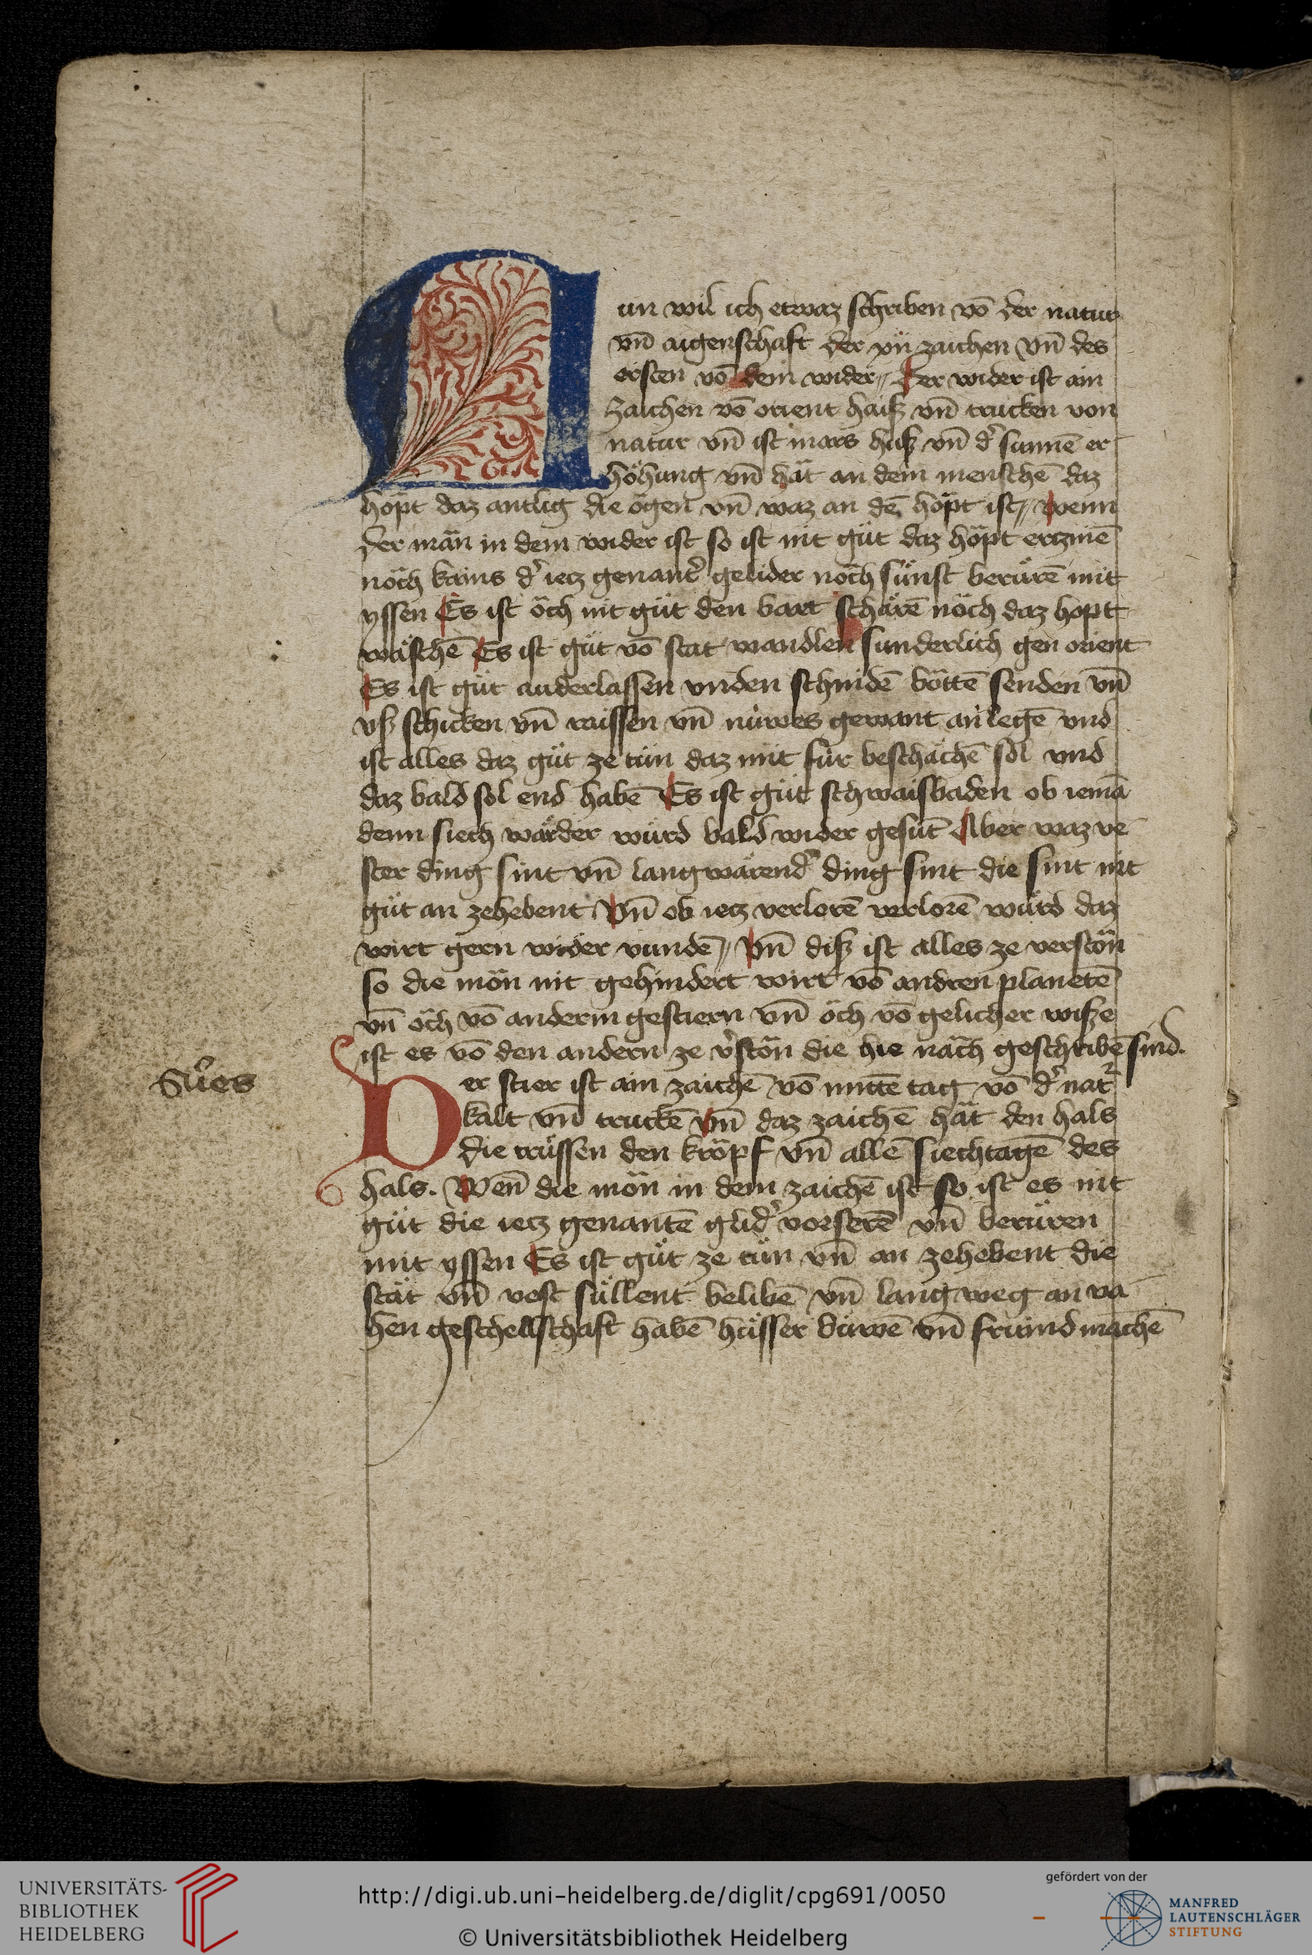 Nun wil ich etwaz schriben vō der natur
vn̄ aigenschaft der xij zaichen vn̄ des
ersten vō dem wider Der wider ist ain
zaichen vō orient haiß vn̄ trucken von
natur vn̄ ist mars huß vn̄ d' sunnē er
höhung vn̄ hāt an dem menschē daz
höpt daz antlig die ögen vn̄ waz an dē höpt ist wenn
der mān in dem wider ist so ist nit gůt daz höpt ertznıē
noch kains d' ietz genant' gelider noch sünst berürē mit
yssen Es ist öch nit gůt den bart schärē nöch daz hopt
wäschē Es ist gůt vō stat wandlen sunderlich gen orient
Es ist gůt auderlassen vnden schnidē böttē senden vn̄
vß schicken vn̄ raissen vn̄ nüwes gewant an legē vnd
ist alles daz gůt ze tůn daz mit für beschächē sol vnd
daz bald sol end habē Es ist gůt schwaisbaden ob iemā
denn siech wärder würd bald wider gesůt Aber waz ve
ster ding sint vn̄ langwärend' ding sint die sint nit
gůt an zehebent Vn̄ ob ietz verlorē verlorē würd daz
wirt gern wider vundē Vn̄ diß ist alles ze verstön
so die mön nit gehindert wirt vō andren planetē
vn̄ öch vō anderm gestiern vn̄ öch vō gelicher wiße
ist es vō den andern ze v'stön die hie nāch geschribē sind.
Der stier ist ain zaichē vō mittē tag vō d' nat'
kalt vn̄ truckē vn̄ daz zaichē hāt den hals
die trüssen den kropf vn̄ allē siechtagē des
hals. Wen̄ die mön in dem zaichē ist so ist es nit
gůt die ietz genantē glid' vorserē vn̄ berüren
mit yssen Es ist gůt ze tůn vn̄ an zehebent die
stät vn̄ vest süllent belibē vn̄ lang weg an va
hen geschellschaft habē hüsser buwē vn̄ fründ machē
UNIVERSITÄTS-
BIBLIOTHEK
HEIDELBERG
http://digi.ub.uni-heidelberg.de/diglit/cpg691/0050
© Universitätsbibliothek Heidelberg
gefördert von der
MANFRED
LAUTENSCHLÄGER
STIFTUNG